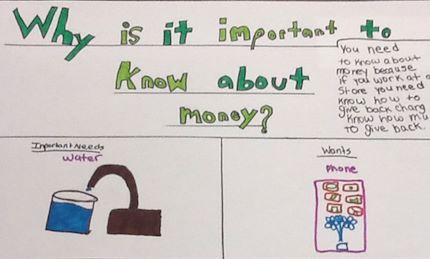 Why is it important to
Know about
money?
You need
to know about
money because
if you work at a
Store you need
Know how to
give back charg
Know how mu
To give back.
Important Needs
Water
Wants
Phone